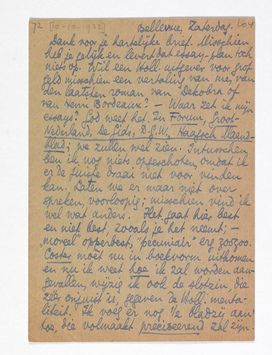 72
Bellevue, Zaterdag.
Dank voor je hartelijke brief. Misschien
heb je gelijk en levert dat essay-plan toch
niets op. Wil een Holl. uitgever voor grof
geld misschien een vertaling van me, van
den laatsten roman van Dekobra of
van Henri Bordeaux? — Waar zet ik mijn
essays? God weet het. In Forum, Groot-
Nederland, de Gids, Haagsch Maand-
blad; we zullen wel zien. Intusschen
ben ik nog niet opgeschoten omdat ik
er de juiste draai niet voor vinden
kan. Laten we er maar niet over
spreken, voorloopig; misschien vind ik
wel wat anders. Het gaat hier best
en niet best, zooals je het neemt; —
"moreel" opperbest, "pecuniair" erg zoozoo.
Coster moet nu in boekvorm uitkomen
en nu ik weet hoe ik zal worden aan-
gevallen, wijzig ik ook de slotzin, die
zeer onjuist is, gegeven de Holl. menta-
liteit. Ik voeg er nog 1/2 bladzij aan
toe, die volmaakt preciseerend zal zijn.